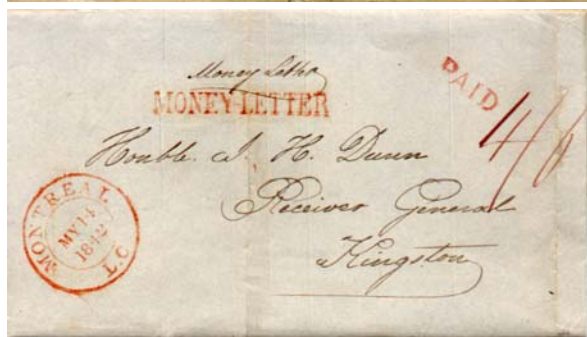 Money Letter
MONEY-LETTER
PAID
4/6
Honble. J. H. Dunn
Receiver General
Kingston
MONTREAL
MY 14
1842
L.C